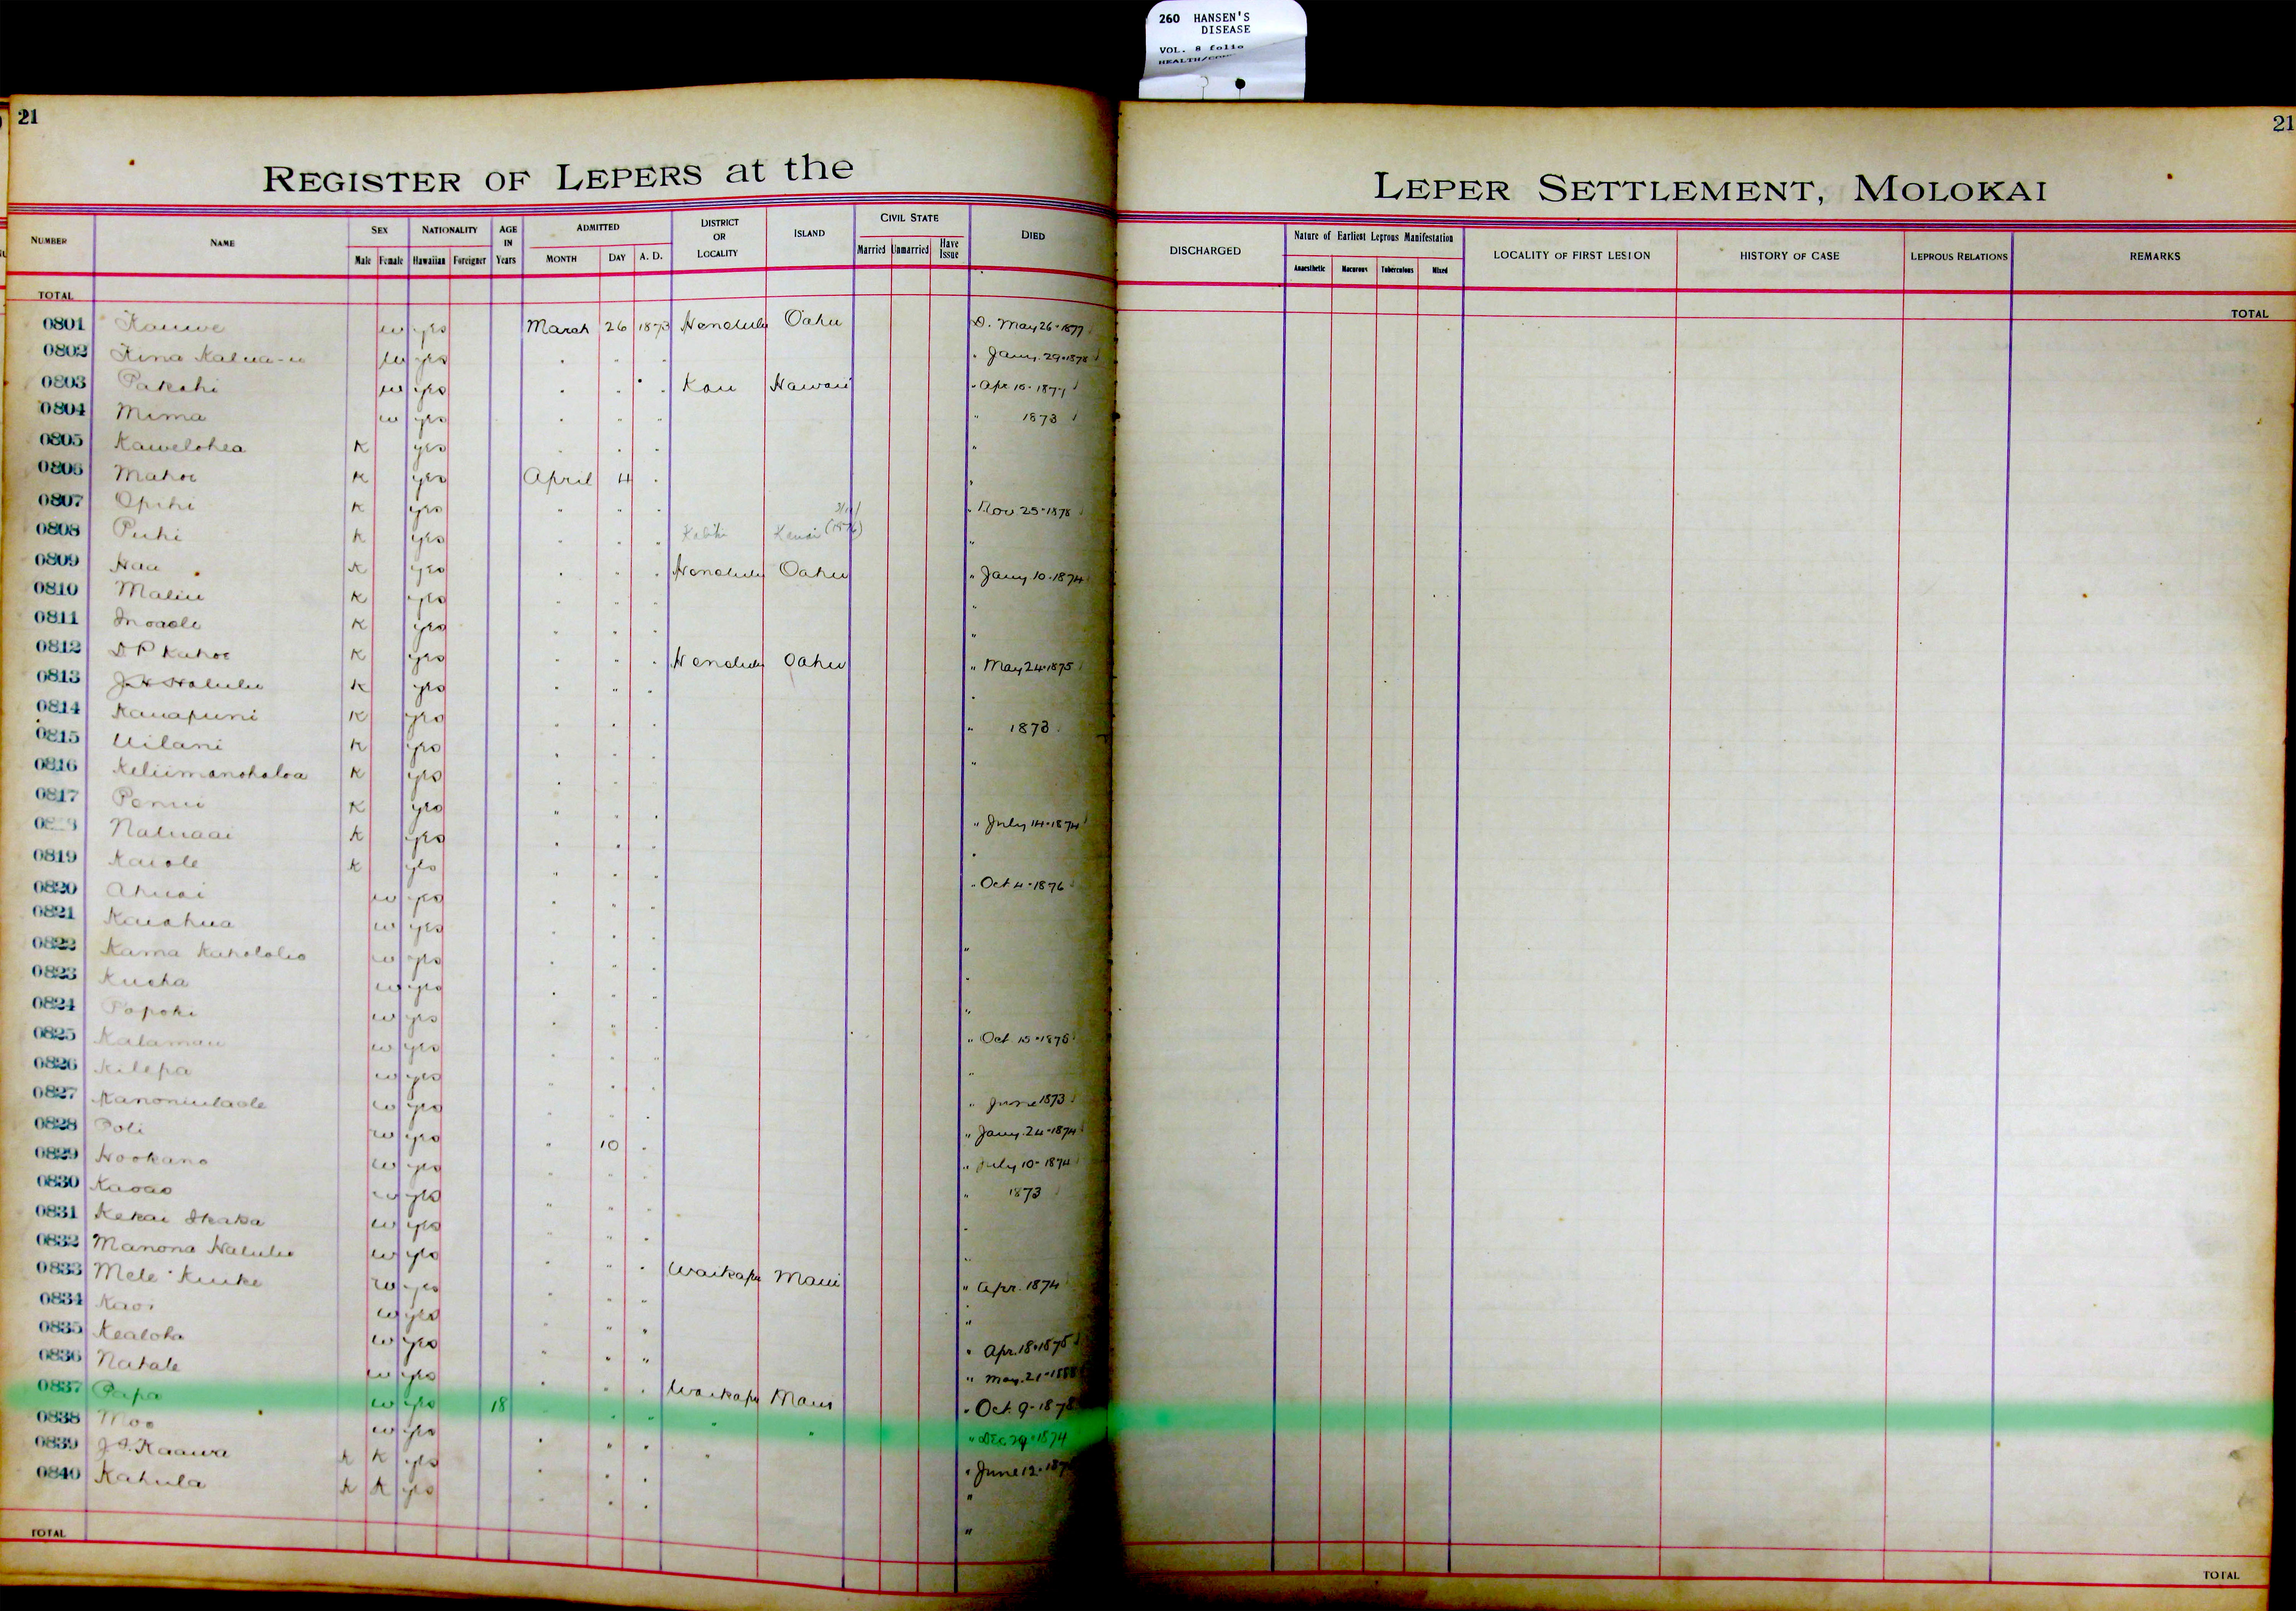 260 HANSEN'S
DISEASE
VOL. 8 folio
21
21
REGISTER OF LEPERS at the LEPER SETTLEMENT, MOLOKAI
NUMBER NAME SEX NATIONALITY AGE IN Years ADMITTED DISTRICT OR LOCALITY ISLAND CIVIL STATE DIED DISCHARGED Nature of Earliest Leprous Manifestation LOCALITY OF FIRST LESION HISTORY OF CASE LEPROUS RELATIONS REMARKS
Male Female Hawaiian Foreigner MONTH DAY A. D. Married Unmarried Have Issue Anaesthetic Macorous Tuberculous Mixed
TOTAL TOTAL
0801 Kauwe w yes March 26 1873 Honolulu Oahu D. May 26-1877
0802 w yes " " " " Jany. 29-1878
0803 Pakahi w yes " " " Kau Hawaii " Apr 10-1877
0804 Mima w yes " " " " 1873
0805 Kawelohea K yes " " " "
0806 Mahoe K yes April 4 " "
0807 Opihi K yes " " " " Nov 25-1878
0808 Puhi K yes " " " Kauai "
0809 Hau K yes " " " Honolulu Oahu " Jany 10-1874
0810 Maliu K yes " " " "
0811 K yes " " " "
0812 K yes " " " Honolulu Oahu " May 24-1875
0813 Halulu K yes " " " "
0814 Kauapuni K yes " " " " 1873
0815 Uilani K yes " " " "
0816 Keliimanohaloa K yes " " "
0817 Penui K yes " " " " July 14-1874
Naluaai K yes " " " "
0819 Kaiole K yes " " " " Oct 4-1876
0820 Ahuai w yes " " "
0821 Kaiahua w yes " " " "
0822 Kama Kahololio w yes " " " "
0823 Kueha w yes " " " "
0824 Popoki w yes " " " " Oct 15-1875
0825 Kalamau w yes " " " "
0826 Kilepa w yes " " " " June 1873
0827 w yes " " " " Jany. 24-1874
0828 Poli w yes " 10 " " July 10-1874
0829 Hookano w yes " " " " 1873
0830 Kaoao w yes " " " "
0831 Kekai w yes " " " "
0832 Manona Halulu w yes " " " Waikapu Maui " Apr. 1874
0833 Mele Kuike w yes " " " "
0834 Kaoi w yes " " " " Apr. 18-1875
0835 Kealoha w yes " " " " May. 21-1888
0836 Nakale w yes " " " Waikapu Maui " Oct. 9-1878
0837 Papa w yes 18 " " " " " " Dec 29-1874
0838 Moo w yes " " " " " June 12
0839 Kaawa K K yes " " " "
0840 Kahula K K yes " " " "
TOTAL TOTAL